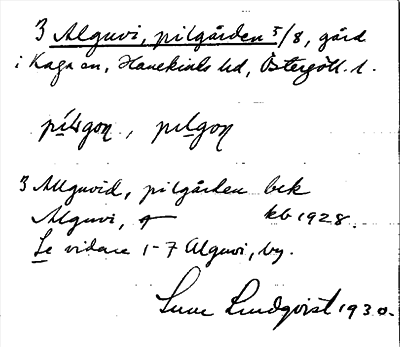 3 Alguvi, pilgården 5/8, gård
i Kaga sn, Hanekinds hd, Östergötl. l.
pilsgoŋ, pilgoŋ
3 Allguvid, pilgården bck
Alguvi, kb 1928.
Se vidare 1-7 Alguvi, by.
Sune Lindqvist 1930.